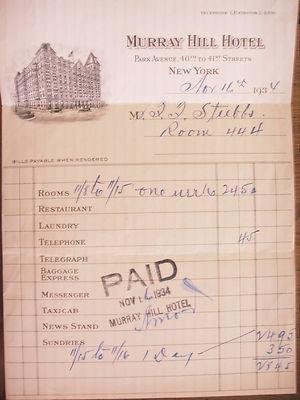 TELEPHONE LEXINGTON 2-2300
MURRAY HILL HOTEL
PARK AVENUE, 40TH TO 41ST STREETS
NEW YORK
Nov 16th 1934
M
Stubbs
Room 444
BILLS PAYABLE WHEN RENDERED
ROOMS 11/8 to 11/15 one week 24 50
RESTAURANT
LAUNDRY
TELEPHONE 45
TELEGRAPH
BAGGAGE
EXPRESS
PAID
MESSENGER
NOV 16 1934
TAXICAB
MURRAY HILL HOTEL
NEWS STAND
24 95
SUNDRIES
3 50
11/15 to 11/16 1 Day
28 45